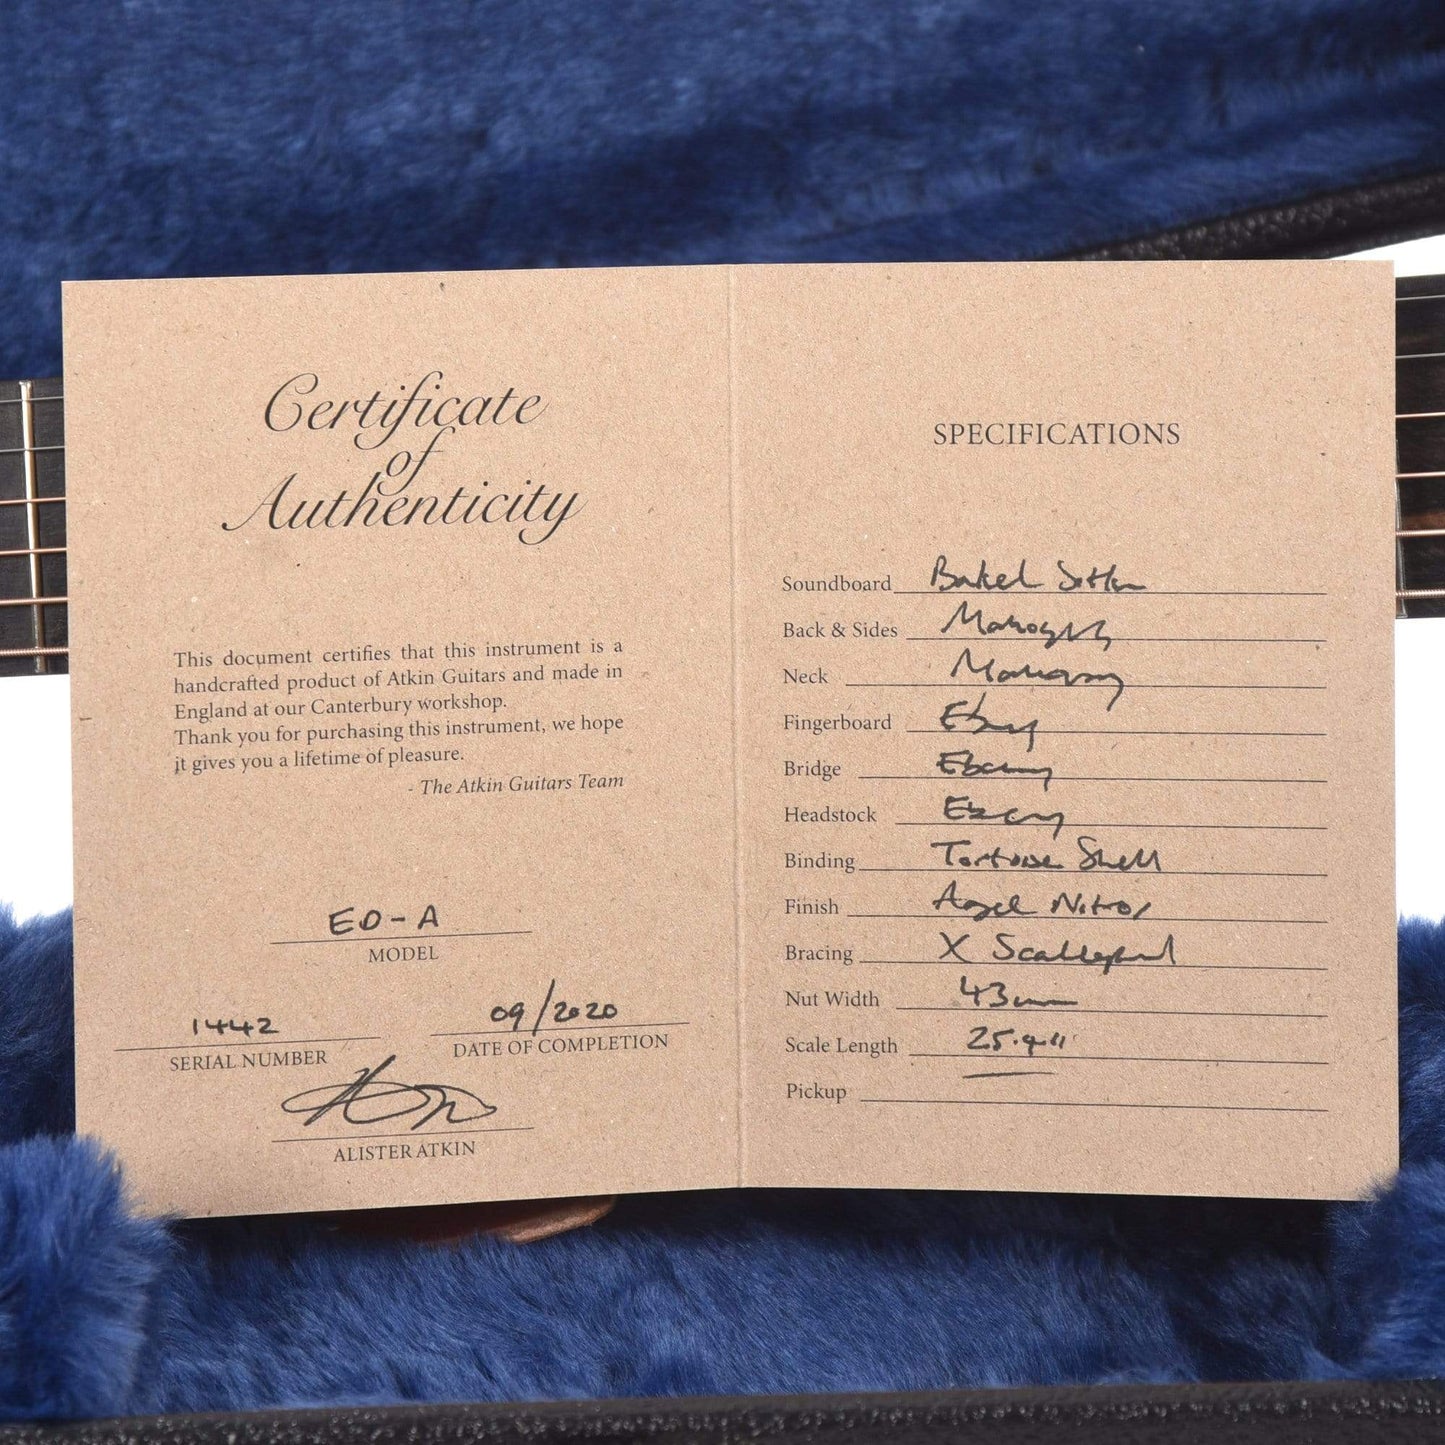 Certificate
of
Authenticity
This document certifies that this instrument is a
handcrafted product of Atkin Guitars and made in
England at our Canterbury workshop.
Thank you for purchasing this instrument, we hope
it gives you a lifetime of pleasure.
- The Atkin Guitars Team
ED-A
MODEL
1442
SERIAL NUMBER
09/2020
DATE OF COMPLETION
ALISTER ATKIN
SPECIFICATIONS
Soundboard Baked Sitka
Back & Sides Mahogany
Neck Mahogany
Fingerboard Ebony
Bridge Ebony
Headstock Ebony
Binding Tortoise Shell
Finish Aged Nitro
Bracing X Scalloped
Nut Width 43mm
Scale Length 25.4"
Pickup